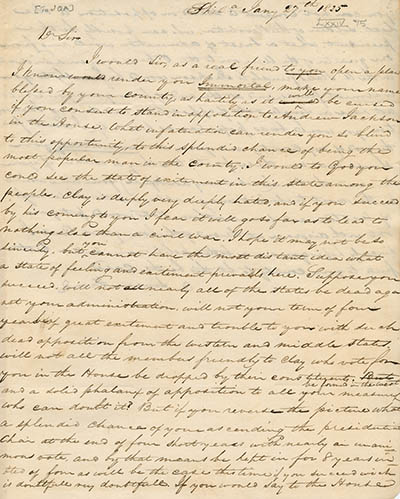 [to JQA]
Phila Jany 27th 1825
LXXIV 45
Dr Sir
I would Sir, as a real friend to you open a plan
I know would render you Immortal, make your name
blessed by your country, as hartily as it will be cursed
if you consent to stand in opposition to Andrew Jackson
in the House. What infatuation can render you so blind
to this opportunity, to this splendid chance of being the
most popular man in the country, I would to God you
could see the state of excitement in this State among the
people. Clay is deeply very deeply hated, and if you succeed
by his coming to you I fear it will go so far as to lead to
nothing else than a civil war. I hope it may not be so
sincerely, but you cannot have the most distant idea what
a state of feeling and excitement prevails here. Suppose you
succeed, will not all nearly all of the states be dead aga
nst your administration, will not your term of four
years be of great excitement and trouble to you with such
dead opposition from the western and middle states,
will not all the members friendly to Clay who vote for
you in the House be dropped by their constituents,
be found in the west
and a solid phalanx of opposition to all your measures
who can doubt it? But if you reverse the picture what
a splendid chance of your ascending the presidential
chair at the end of four short years with nearly a unani-
mous vote, and by that means be kept in for 8 years in
sted of four as will be the case this time if you succeed wich
is doubtfull very doubtfull. If you would say to the House